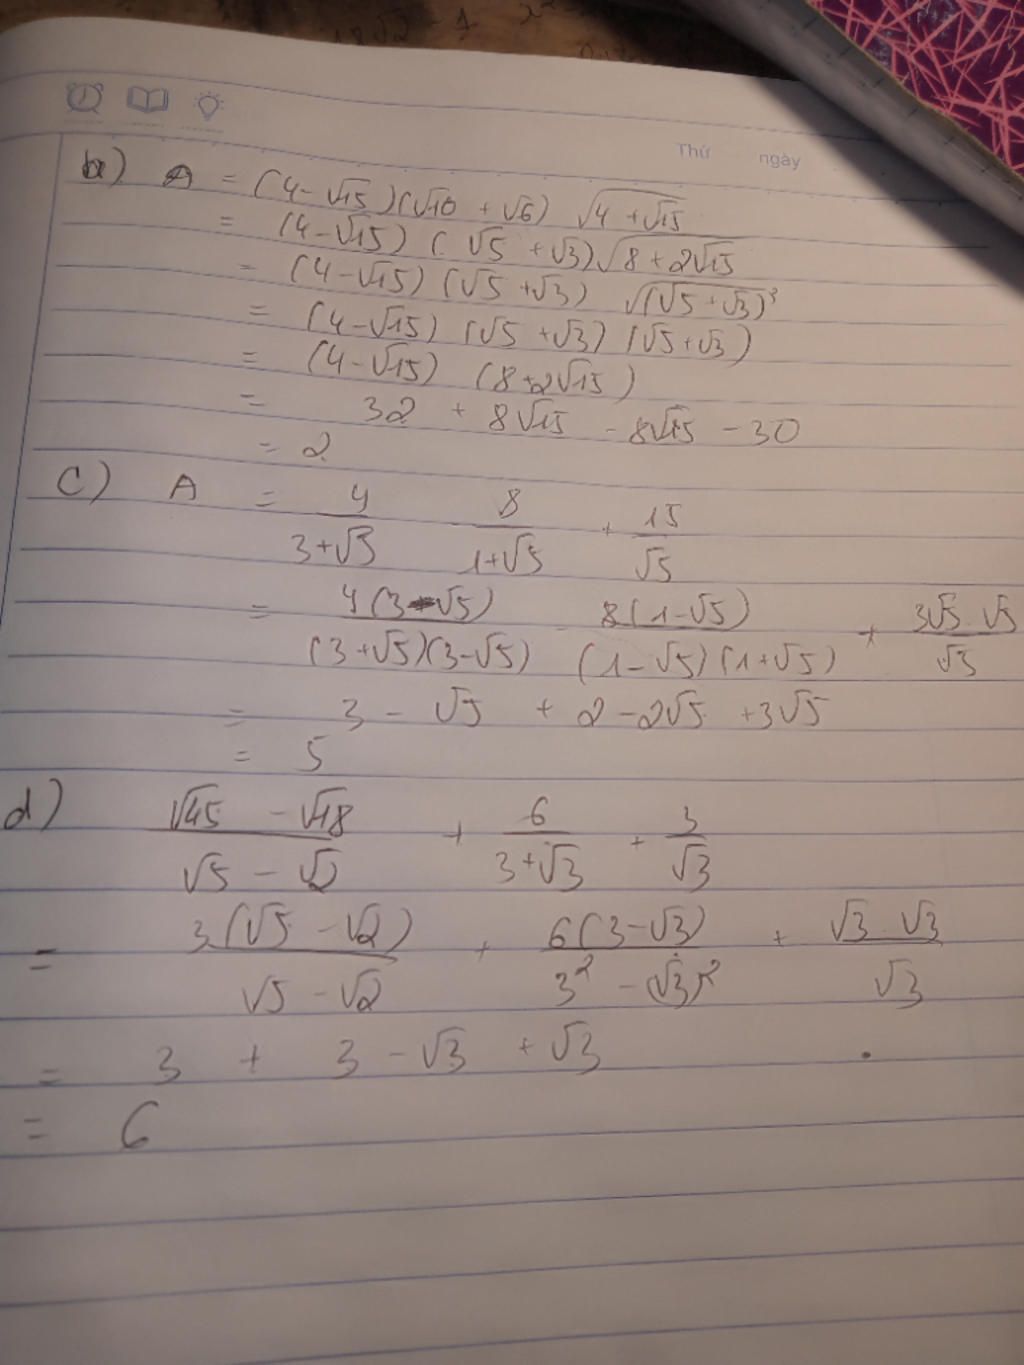 Thứ ngày
b) A = (4-√15)(√10 + √6) √(4+√15)
= (4-√15) (√5 + √3)√(8+2√15)
= (4-√15) (√5+√3) √((√5+√3)²)
= (4-√15) (√5+√3) (√5+√3)
= (4-√15) (8+2√15)
= 32 + 8√15 - 8√15 - 30
= 2
c) A = 4/(3+√5) 8/(1+√5) + 15/√5
= 4(3-√5)/((3+√5)(3-√5)) - 8(1-√5)/((1-√5)(1+√5)) + 3√5.√5/√5
= 3 - √5 + 2-2√5 +3√5
= 5
d) (√45 -√18)/(√5 - √2) + 6/(3+√3) + 3/√3
= 3(√5 - √2)/(√5 - √2) + 6(3-√3)/(3² - (√3)²) + √3.√3/√3
= 3 + 3 - √3 + √3
= 6